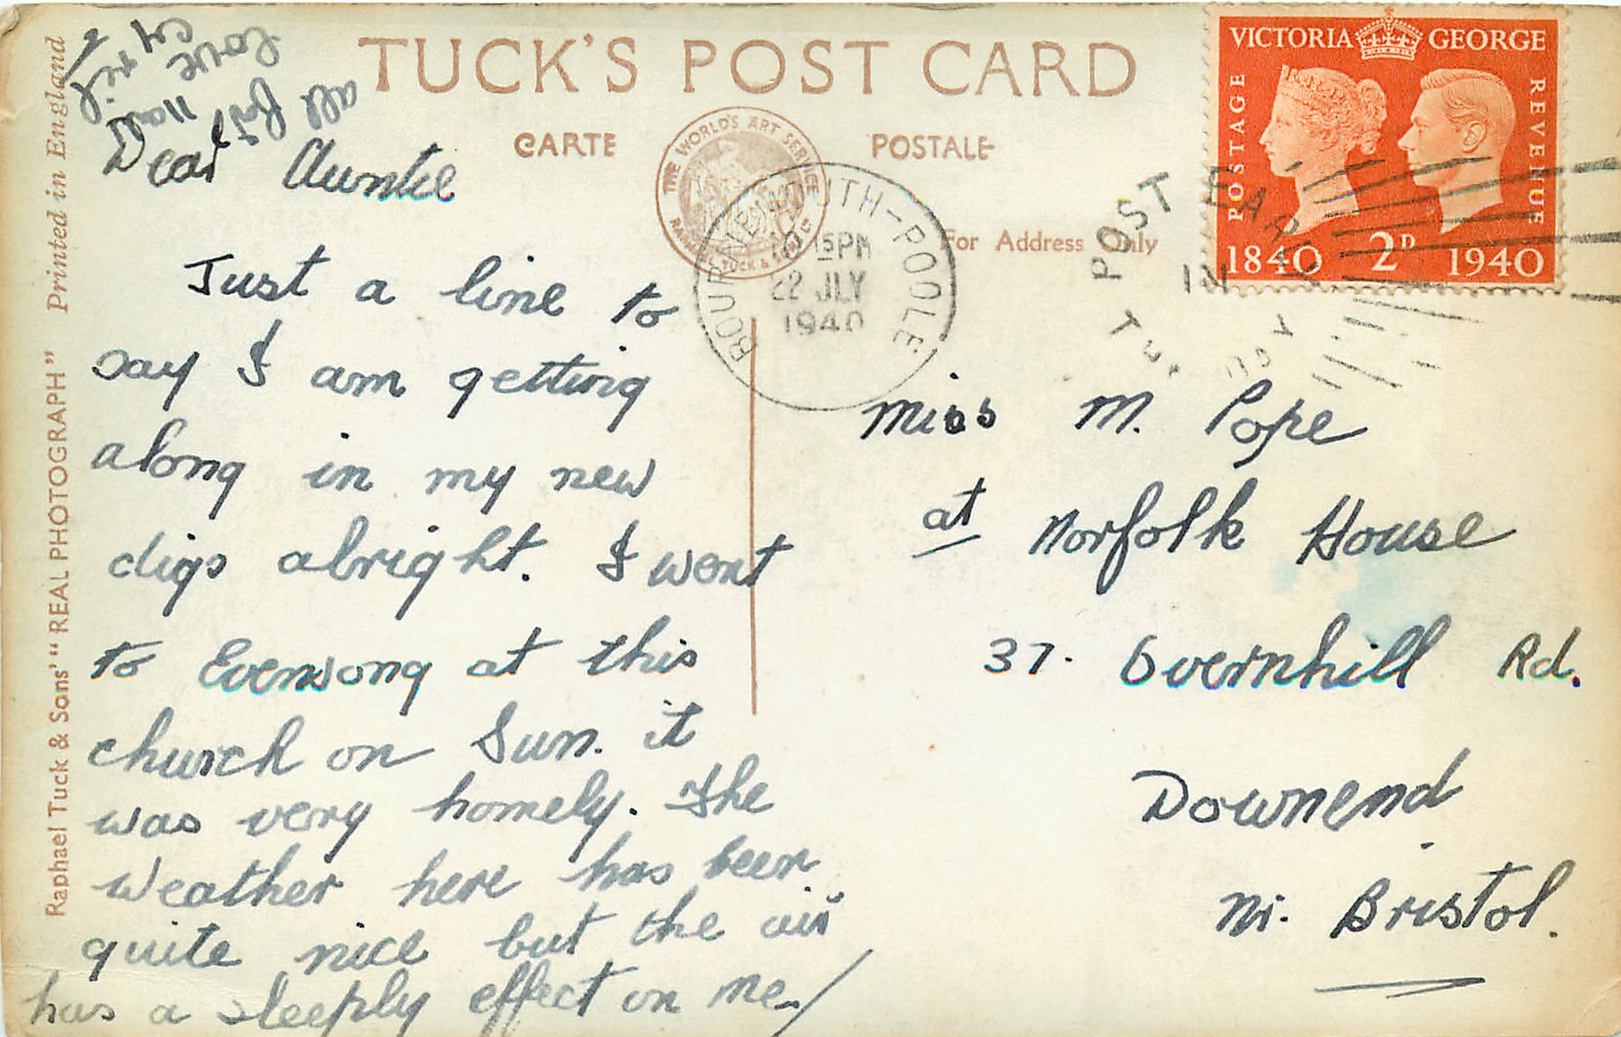 TUCK'S POST CARD
CARTE POSTALE
THE WORLD'S ART SERVICE
RAPHAEL TUCK & SONS LTD
For Address Only
Printed in England
Raphael Tuck & Sons' "REAL PHOTOGRAPH"
VICTORIA GEORGE
POSTAGE REVENUE
1840 2D 1940
BOURNEMOUTH-POOLE
15 PM
22 JLY
1940
POST EARLY
IN
Dear Auntie
Just a line to
say I am getting
along in my new
digs alright. I went
to Evensong at this
church on Sun. it
was very homely. The
weather here has been
quite nice but the air
has a sleeply effect on me/
all for now
love
Cyril
Miss M. Pope
at Norfolk House
37. Overnhill Rd.
Downend
Nr. Bristol.